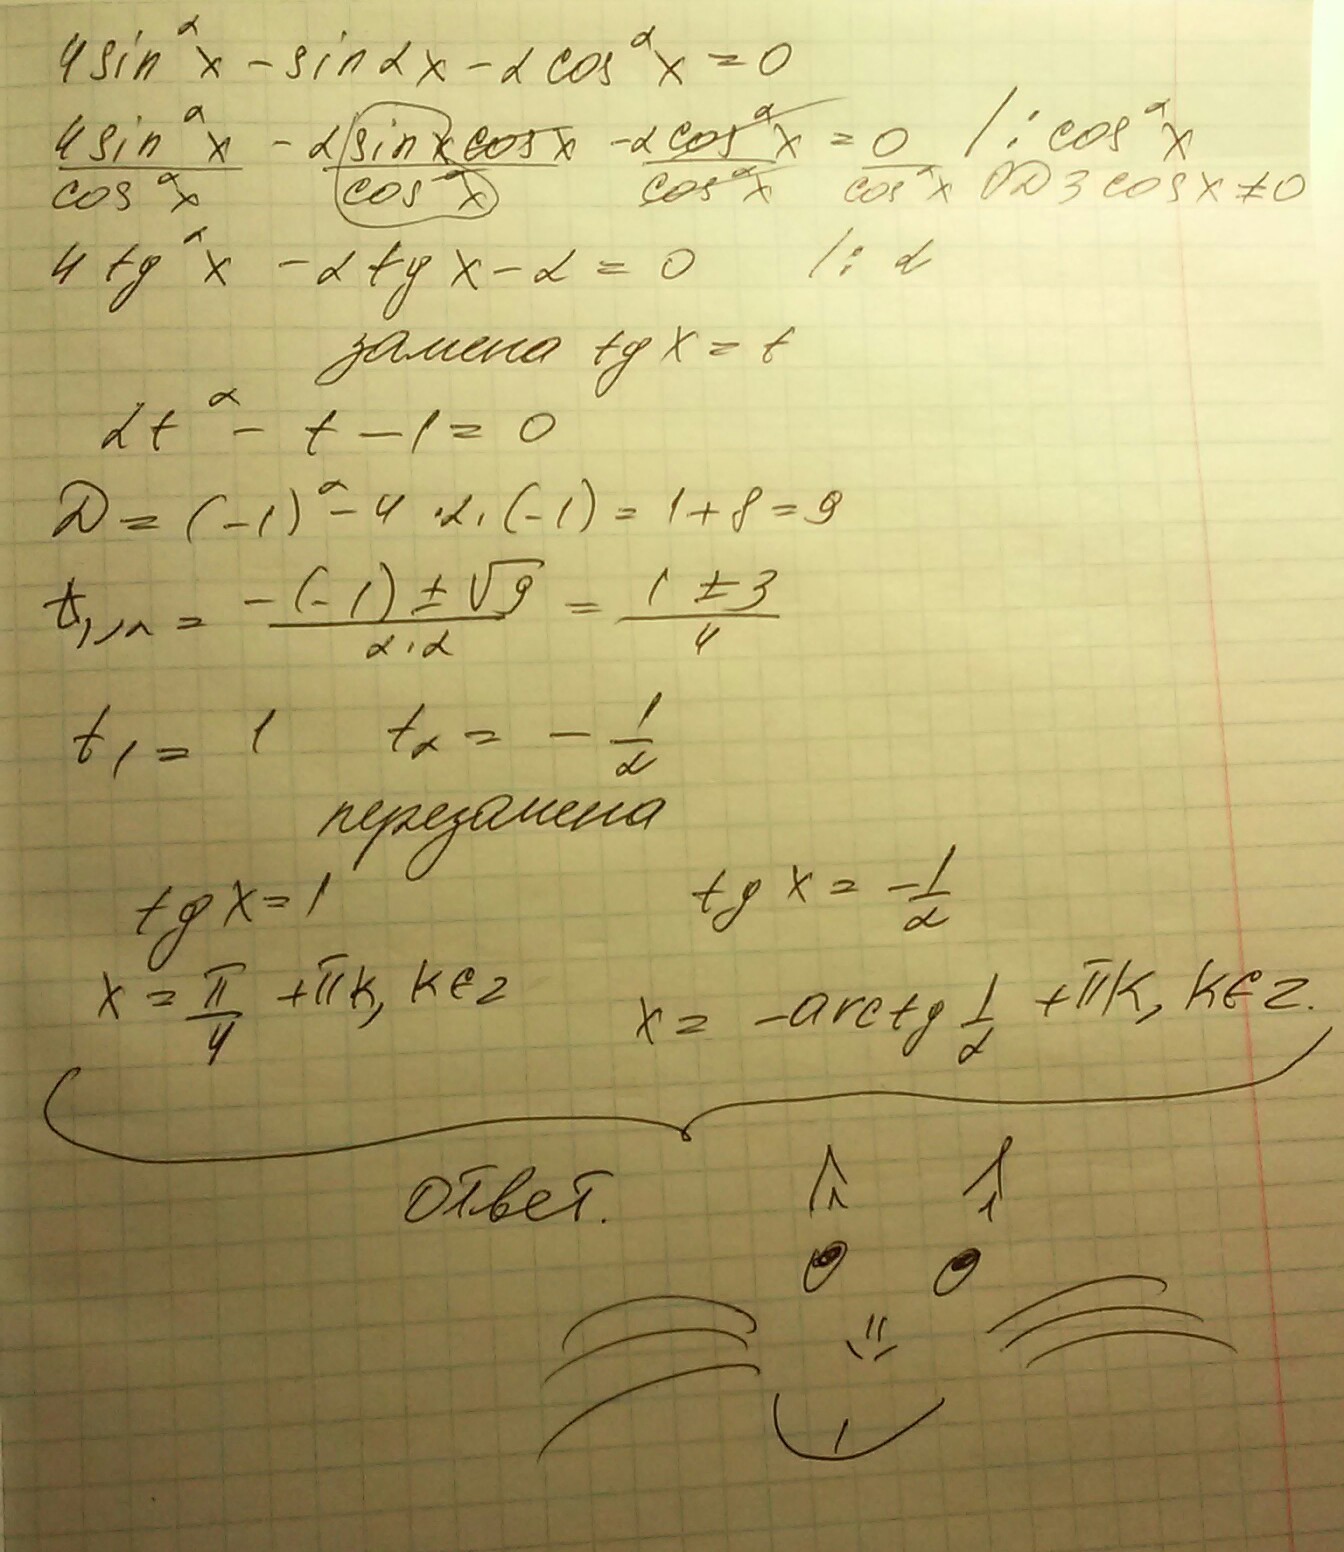 4sin²x - sin2x - 2cos²x = 0
4sin²x/cos²x - 2sinxcosx/cos²x - 2cos²x/cos²x = 0/cos²x /: cos²x ОДЗ cosx≠0
4tg²x - 2tgx - 2 = 0 /: 2
замена tgx = t
2t² - t - 1 = 0
D = (-1)² - 4·2·(-1) = 1+8 = 9
t₁,₂ = (-(-1) ± √9)/(2·2) = (1 ± 3)/4
t₁ = 1 t₂ = -1/2
перезамена
tgx = 1 tgx = -1/2
x = π/4 + πk, k∈z x = -arctg 1/2 + πk, k∈z.
Ответ.